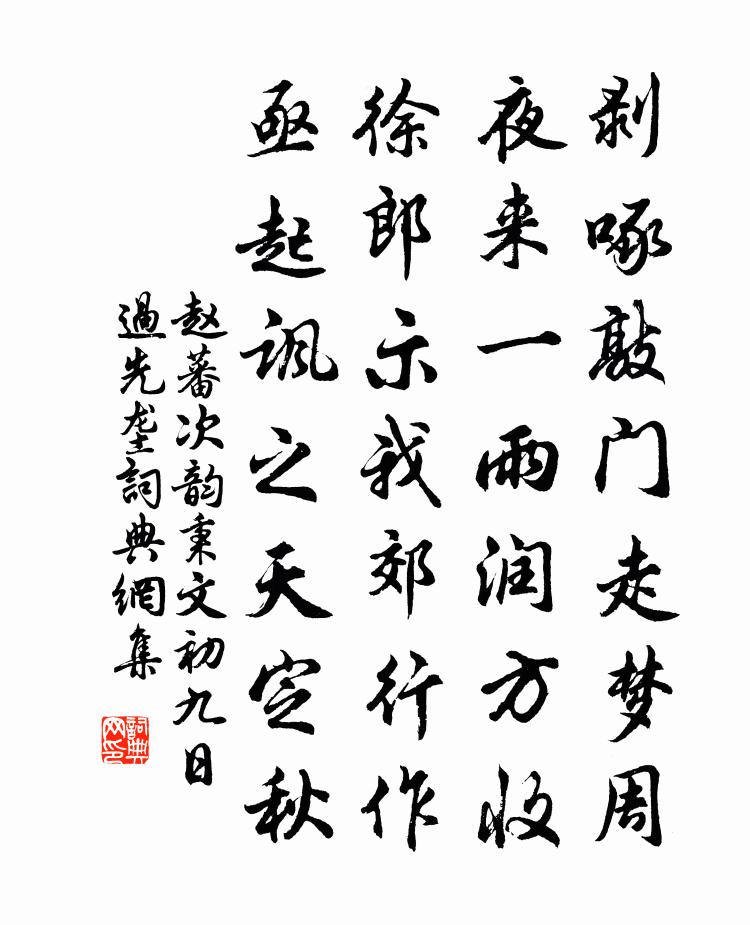 剥啄敲门走梦周
夜来一雨润方收
徐郎示我郊行作
亟起讽之天定秋
赵蕃次韵秉文初九日
过先垄詞典網集
詞典
网印